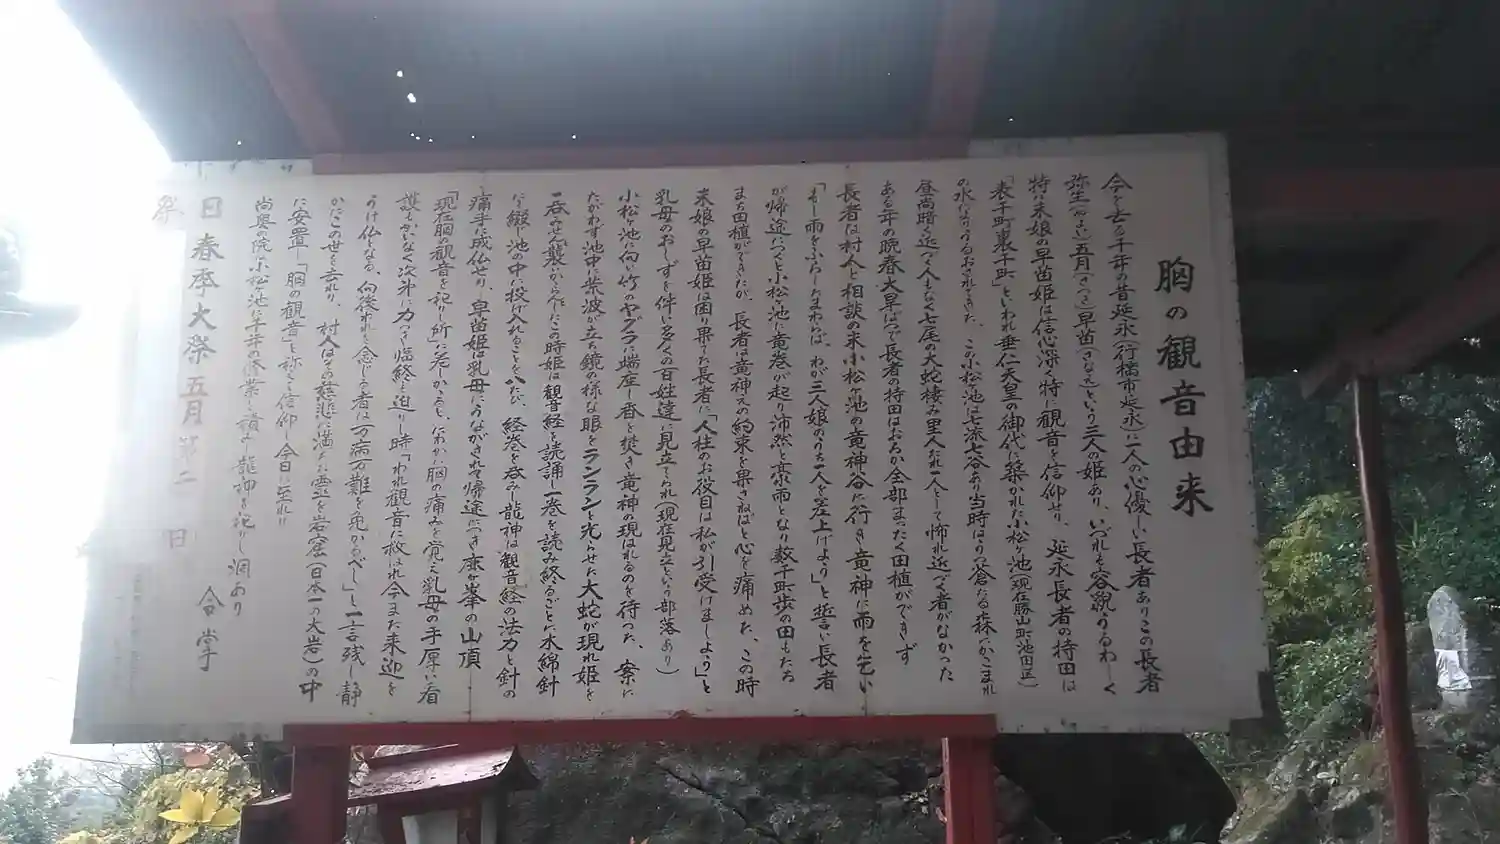 胸の観音由来
今を去る千年の昔延永(行橋市延永)に一人の心優しい長者ありこの長者
弥生(やよい)五月(さつき)早苗(さなえ)という三人の姫あり、いづれも容貌うるわしく
特に末娘の早苗姫は信心深く特に観音を信仰せり、延永長者の持田は
「表千町裏千町」といわれ垂仁天皇の御代に築かれた小松ヶ池(現在勝山町池田区)
の水でうるおされてきた、この小松池は七流七谷あり当時はうつ蒼たる森にかこまれ
昼尚暗く近づく人もなく七尾の大蛇棲み里人だれ一人として怖れ近づく者がなかった
ある年の晩春大旱ばつで長者の持田はおろか全部まったく田植ができず
長者は村人と相談の末小松ヶ池の竜神谷に行き竜神に雨を乞い
「もし雨をふらしたまわれば、わが三人娘のうち一人を差上げましょう」と誓い長者
が帰途につくと小松ヶ池に竜巻が起り沛然と豪雨となり数千町歩の田もたち
まち田植ができたが、長者は竜神えの約束を果さねばと心を痛めた、この時
末娘の早苗姫は困り果てた長者に「人柱のお役目は私が引受けましょう」と
乳母のおしずを伴い多くの百姓達に見立てられ(現在見立という部落あり)
小松ヶ池に向い竹のヤグラに端座し香を焚き竜神の現はれるのを待った、案に
たがわず池中に紫波が立ち鏡の様な眼をランランと光らせた大蛇が現れ姫を
一呑みせんと襲いかからんとしたこの時姫は観音経を読誦し一巻を読み終るごとに木綿針
にて綴じ池の中に投げ入れることを八たび、経巻を呑みし龍神は観音経の法力と針の
痛手に成仏せり、早苗姫は乳母にうながされて帰途につき鹿ヶ峯の山頂
「現在胸の観音を祀りし所」に差しかかると、にわかに胸の痛みを覚え乳母の手厚い看
護もかいなく次第に力つき臨終も迫りし時「われ観音に救はれ今また来迎を
うけ仏となる、向後われを念じる者は万病万難を免かるべし」と一言残し静
かにこの世を去れり、村人はその慈悲に満ちた霊を岩窟(日本一の大岩)の中
に安置し「胸の観音」と称えて信仰し今日に至れり
尚奥の院に小松ヶ池に千年の修業を積みし龍神を祀りし洞あり
合掌
日春季大祭五月第二日
祭